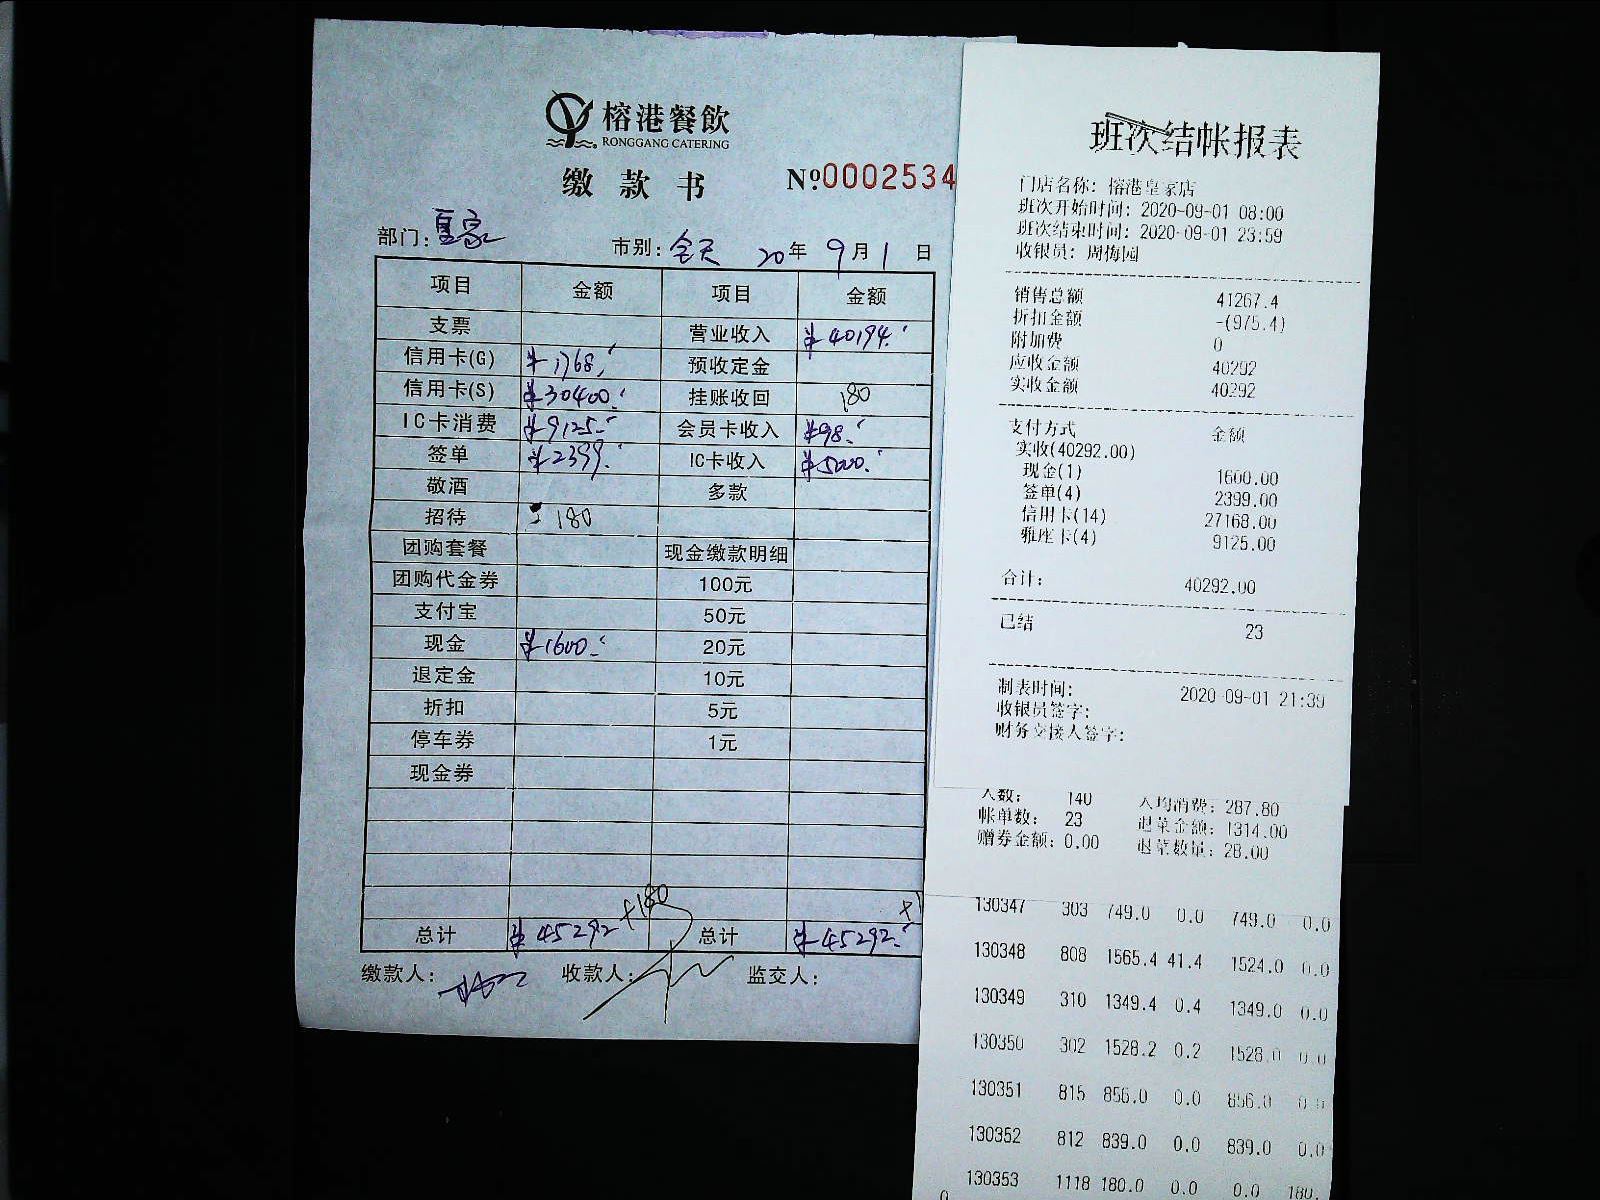 榕港餐飲
RONGGANG CATERING
缴款书 №0002534
部门：皇家 市别：全天 20年9月1日
项目 金额 项目 金额
支票 营业收入 ¥40194.-
信用卡(G) ¥1768.- 预收定金
信用卡(S) ¥30400.- 挂账收回 180
IC卡消费 ¥9125.- 会员卡收入 ¥98.-
签单 ¥2399.- IC卡收入 ¥5000.-
敬酒 多款
招待 180
团购套餐 现金缴款明细
团购代金券 100元
支付宝 50元
现金 ¥1600.- 20元
退定金 10元
折扣 5元
停车券 1元
现金券
+180
总计 ¥45292 总计 ¥45292.-
缴款人： 收款人： 监交人：
班次结帐报表
门店名称：榕港皇家店
班次开始时间：2020-09-01 08:00
班次结束时间：2020-09-01 23:59
收银员：周梅园
销售总额 41267.4
折扣金额 -(975.4)
附加费 0
应收金额 40292
实收金额 40292
支付方式 金额
实收(40292.00)
现金(1) 1600.00
签单(4) 2399.00
信用卡(14) 27168.00
雅座卡(4) 9125.00
合计： 40292.00
已结 23
制表时间： 2020-09-01 21:39
收银员签字：
财务交接人签字：
人数： 140 人均消费：287.80
帐单数： 23 退菜金额：1314.00
赠券金额：0.00 退菜数量：28.00
130347 303 749.0 0.0 749.0 0.0
130348 808 1565.4 41.4 1524.0 0.0
130349 310 1349.4 0.4 1349.0 0.0
130350 302 1528.2 0.2 1528.0 0.0
130351 815 856.0 0.0 856.0 0.0
130352 812 839.0 0.0 839.0 0.0
130353 1118 180.0 0.0 0.0 180.
0